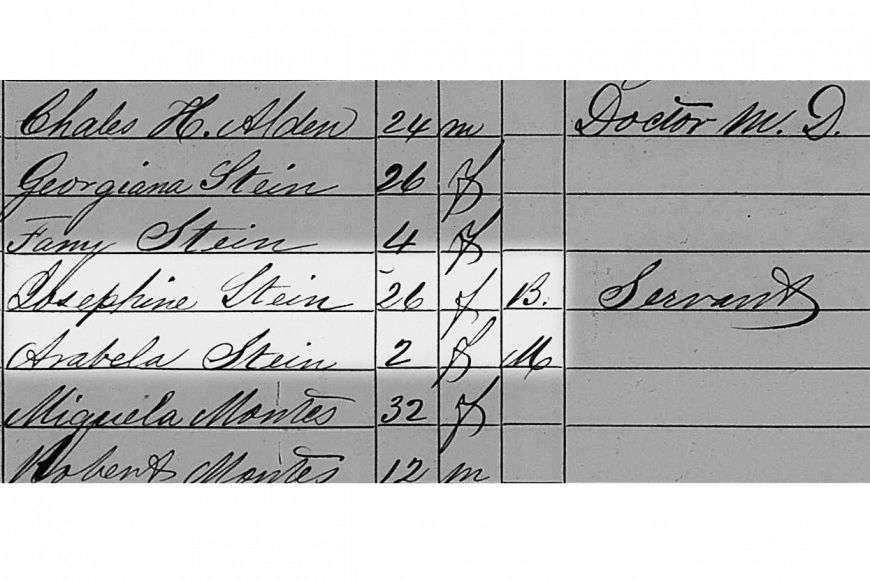 Chales H. Alden 24 m Doctor M. D.
Georgiana Stein 26 f
Famy Stein 4 f
Josephine Stein 26 f B. Servant
Arabela Stein 2 f M
Miquela Montes 32 f
Robert Montes 12 m